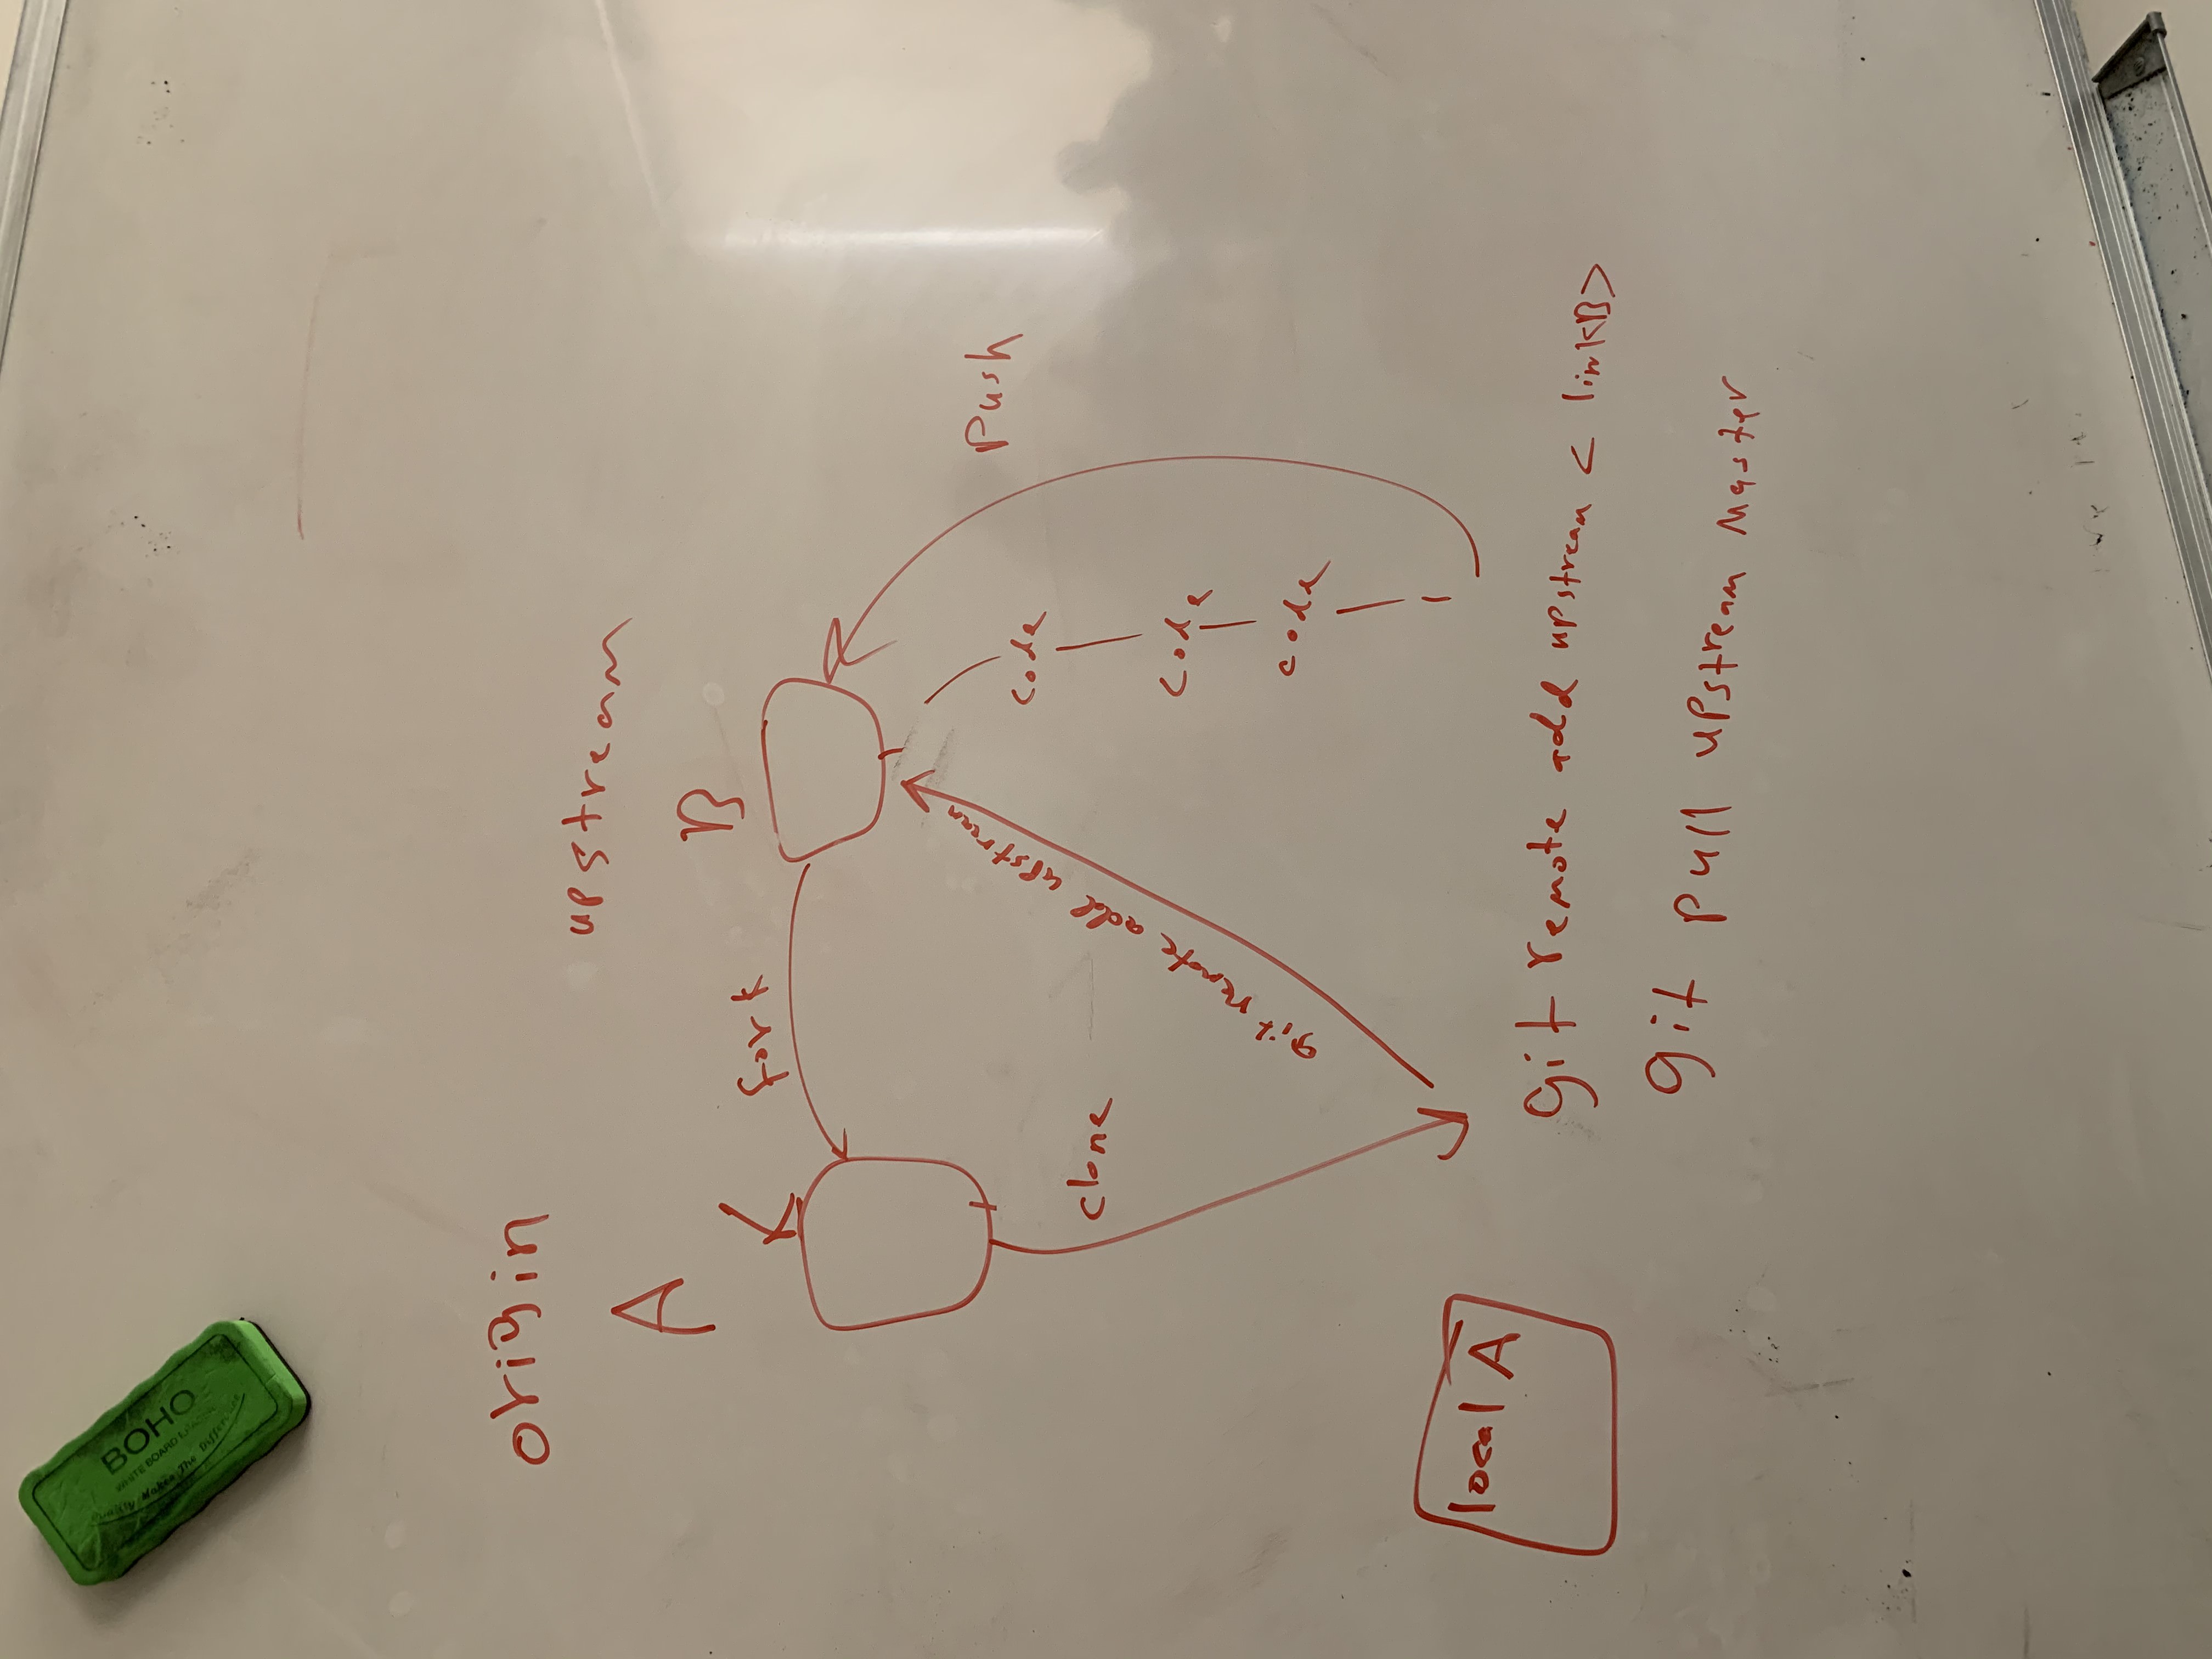 BOHO
WHITE BOARD ERASER
Quickly Makes The Difference
origin
upstream
A
B
fork
Push
code
clone
git remote add upstream
code
code
local A
git remote add upstream < linkB>
git pull upstream Master